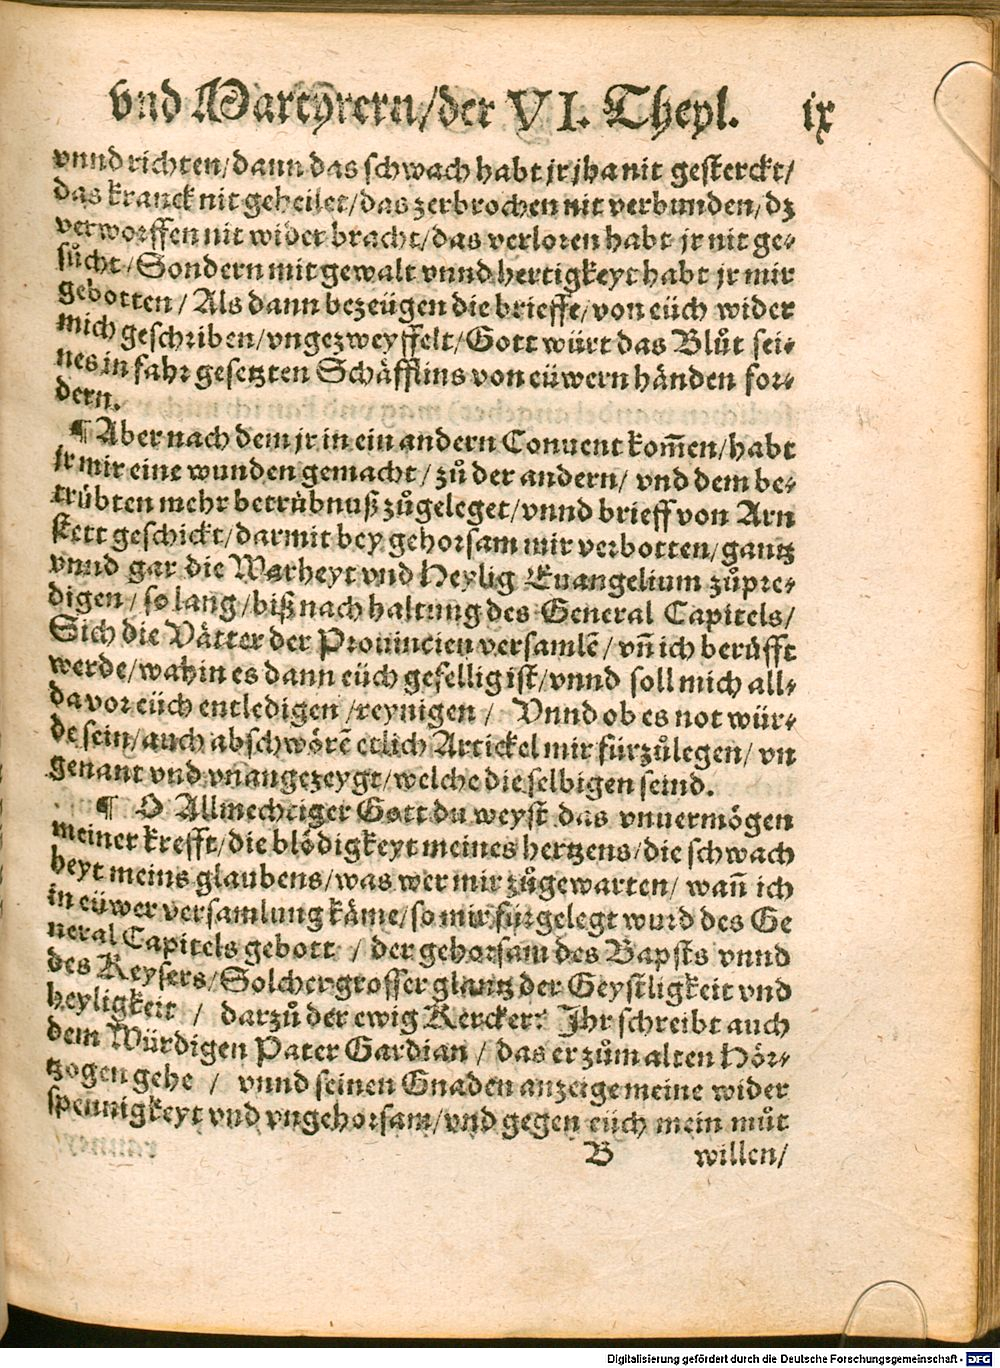 vnd Martyrern/der VI. Theyl. ix
vnnd richten/dann das schwach habt jr jha nit gesterckt/
das kranck nit geheilet/das zerbrochen nit verbunden/dz
verworffen nit wider bracht/das verloren habt jr nit ge⸗
sůcht/Sondern mit gewalt vnnd hertigkeyt habt jr mir
gebotten/ Als dann bezeügen die brieffe/von eüch wider
mich geschriben/vngezweyffelt/Gott würt das Blůt sei⸗
nes in fahr gesetzten Schäfflins von eüwern händen for⸗
dern.
¶ Aber nach dem jr in ein andern Conuent kom̃en/habt
jr mir eine wunden gemacht/ zů der andern/ vnd dem be⸗
trübten mehr betrübnuß zůgeleget/vnnd brieff von Arn
stett geschickt/darmit bey gehorsam mir verbotten/gantz
vnnd gar die Warheyt vnd Heylig Euangelium zůpre⸗
digen/ so lang/biß nach haltung des General Capitels/
Sich die Vätter der Prouincien versamlẽ/ vñ ich berüfft
werde/wahin es dann eüch gefellig ist/vnnd soll mich all⸗
da vor eüch entledigen /reynigen / Vnnd ob es not wür⸗
de sein/auch abschwörẽ etlich Artickel mir fürzůlegen/ vn
genant vnd vnangezeygt/welche die selbigen seind.
¶ O Allmechtiger Gott du weyst das vnuermögen
meiner krefft/die blödigkeyt meines hertzens/die schwach
heyt meins glaubens/was wer mir zůgewarten/ wañ ich
in eüwer versamlung käme/so mir fürgelegt wurd des Ge
neral Capitels gebott / der gehorsam des Bapsts vnnd
des Keysers/Solcher grosser glantz der Geystligkeit vnd
heyligkeit / darzů der ewig Kercker? Ihr schreibt auch
dem Würdigen Pater Gardian / das er zům alten Hör⸗
tzogen gehe / vnnd seinen Gnaden anzeige meine wider
spennigkeyt vnd vngehorsam/vnd gegen eüch mein můt
B willen/
Digitalisierung gefördert durch die Deutsche Forschungsgemeinschaft - DFG